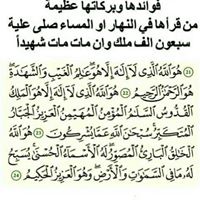 فوائدها وبركاتها عظيمة
من قرأها في النهار او المساء صلى علية
سبعون الف ملك وان مات مات شهيداً
هُوَ ٱللَّهُ ٱلَّذِى لَآ إِلَٰهَ إِلَّا هُوَ عَٰلِمُ ٱلْغَيْبِ وَٱلشَّهَٰدَةِ
هُوَ ٱلرَّحْمَٰنُ ٱلرَّحِيمُ 22 هُوَ ٱللَّهُ ٱلَّذِى لَآ إِلَٰهَ إِلَّا هُوَ ٱلْمَلِكُ
ٱلْقُدُّوسُ ٱلسَّلَٰمُ ٱلْمُؤْمِنُ ٱلْمُهَيْمِنُ ٱلْعَزِيزُ ٱلْجَبَّارُ
ٱلْمُتَكَبِّرُ سُبْحَٰنَ ٱللَّهِ عَمَّا يُشْرِكُونَ 23 هُوَ ٱللَّهُ
ٱلْخَٰلِقُ ٱلْبَارِئُ ٱلْمُصَوِّرُ لَهُ ٱلْأَسْمَآءُ ٱلْحُسْنَىٰ يُسَبِّحُ
لَهُۥ مَا فِى ٱلسَّمَٰوَٰتِ وَٱلْأَرْضِ وَهُوَ ٱلْعَزِيزُ ٱلْحَكِيمُ 24